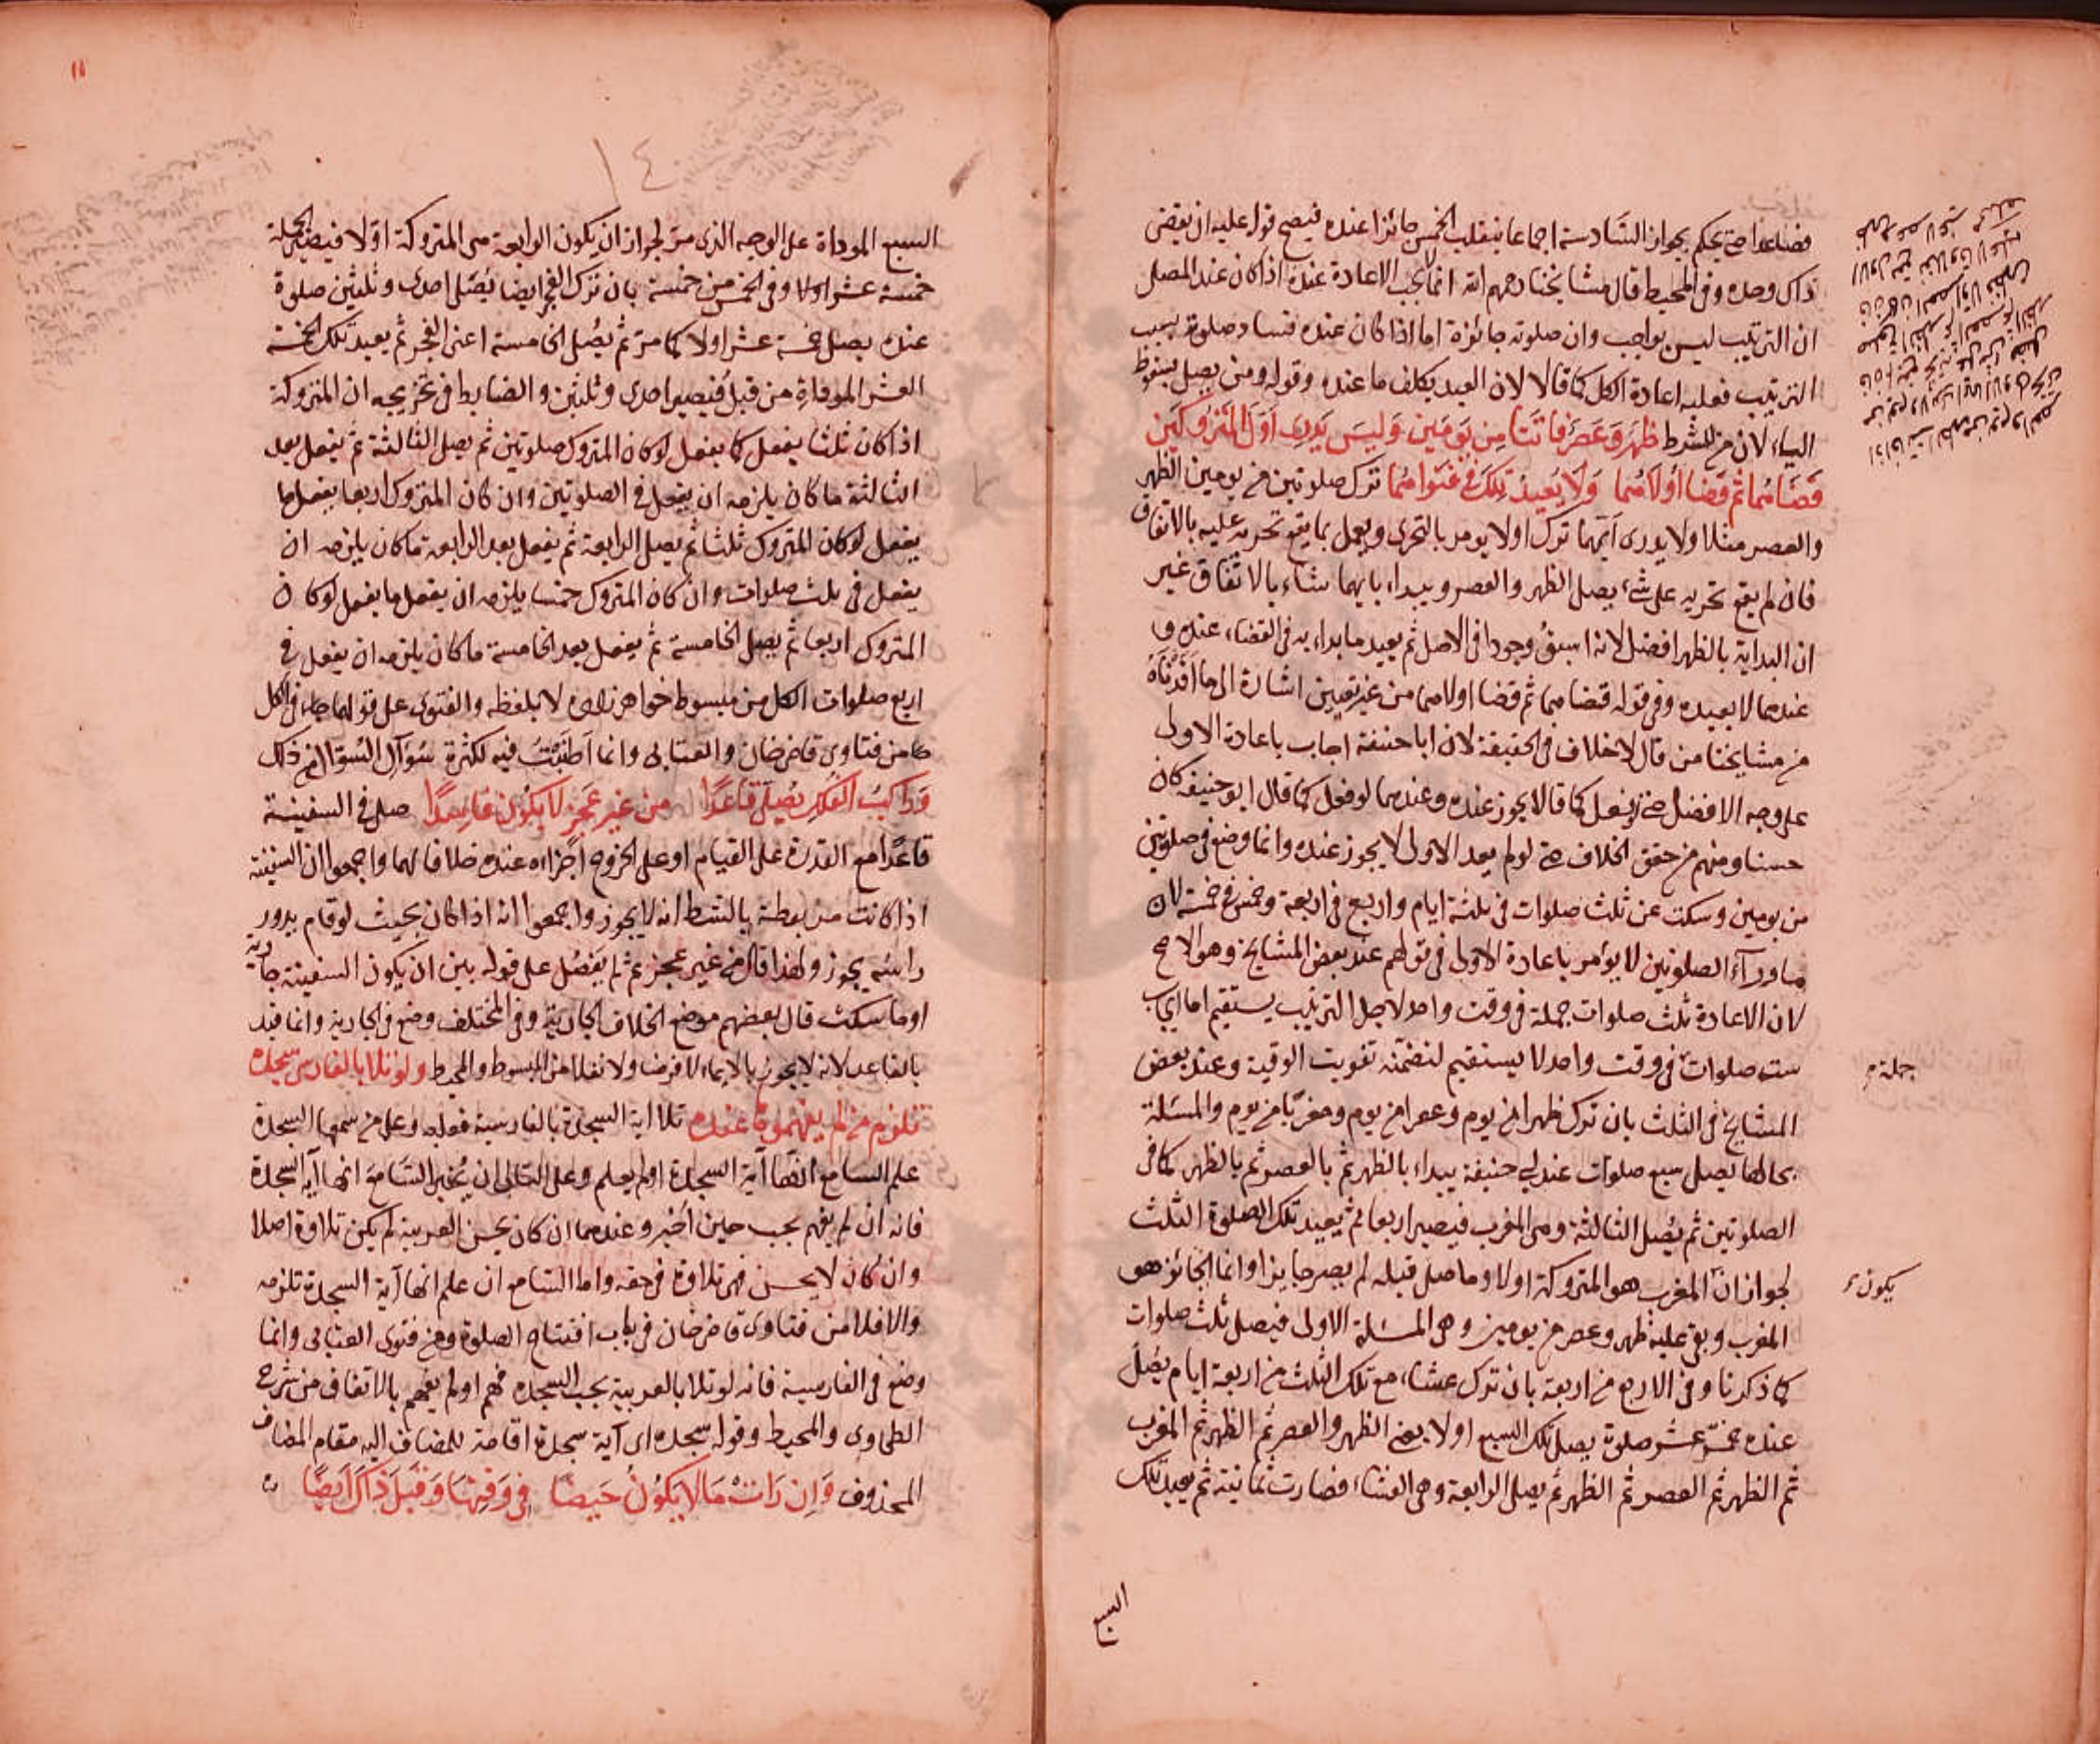 فصاعدا حتى يحكم بجواز السادسة اجماعا ينقلب الخمس جائزا عنده فيصح قوله عليه ان يقضى
ذاك وحده وفى المحيط قال مشايخنا رحمهم الله انما لا يجب الاعادة عنده اذا كان عند المصلى
ان الترتيب ليس بواجب وان صلوته جائزة اما اذا كان عنده فساد صلوة بسبب
الترتيب فعليه اعادة الكل كما قالا لان العبد يكلف ما عنده وقوله ومن يصل بسقوط
الياء لان من للشرط ظهر وعصر فاتتا من يومين وليس يدرك اول المتروكين
قضاهما ثم قضا اولاهما ولا يعيد تلك فى فتواهما ترك صلوتين من يومين الظهر
والعصر مثلا ولا يدرى ايتهما ترك اولا يومر بالتحرى ويعمل بما يقع تحريه عليه بالاتفاق
فان لم يقع تحريه على شئ يصلى الظهر والعصر ويبداء بايهما شاء بالاتفاق غير
ان البداية بالظهر افضل لانه اسبق وجودا فى الاصل ثم يعيد ما بداء به فى القضاء عنده و
عندهما لا يعيده وفى قوله قضاهما ثم قضا اولاهما من غير تعيين اشارة الى ما
من مشايخنا من قال لا خلاف فى الحقيقة لان ابا حنيفة اجاب باعادة الاولى
على وجه الافضل حتى لو فعل كما قالا يجوز عنده وعندهما لو فعل كما قال ابو حنيفة كان
حسنا ومنهم من حقق الخلاف حتى لو لم يعد الاولى لا يجوز عنده وانما وضع فى صلوتين
من يومين وسكت عن ثلث صلوات فى ثلثة ايام واربع فى اربعة وخمس فى خمسة لان
ما وراء الصلوتين لا يؤمر باعادة الاولى فى قولهم عند بعض المشايخ وهو الاصح
لان الاعادة ثلث صلوات جملة فى وقت واحد لاجل الترتيب يستقيم اما ايجاب
ست صلوات فى وقت واحد لا يستقيم لتضمنه تفويت الوقتية وعند بعض
جملة
المشايخ فى الثلث بان ترك ظهرا من يوم وعصرا من يوم ومغربا من يوم والمسئلة
بحالها يصلى سبع صلوات عند ابى حنيفة يبداء بالظهر ثم بالعصر ثم بالظهر كما فى
الصلوتين ثم يصلى الثالثة وهى المغرب فيصير اربعا ثم يعيد تلك الصلوة الثلث
لجواز ان المغرب هو المتروكة اولا وما صلى قبله لم يصر جايزا وانما الجائز هو
يكون
المغرب وبقى عليه ظهر وعصر من يومين وهى المسئلة الاولى فيصلى ثلث صلوات
كما ذكرنا وفى الاربع من اربعة بان ترك عشاء مع تلك الثلث من اربعة ايام يصلى
عنده خمس عشر صلوة يصلى تلك السبع اولا يعنى الظهر والعصر ثم الظهر ثم المغرب
ثم الظهر ثم العصر ثم الظهر ثم يصلى الرابعة وهى العشاء فصارت ثمانية ثم يعيد تلك
السبع
١٤
١١
السبع المؤداة على الوجه الذى مر لجواز ان يكون الرابعة هى المتروكة اولا فيصير الجملة
خمسة عشر اولا وفى الخمس من خمسة بان ترك الفجر ايضا يصلى احدى وثلثين صلوة
عنده يصلى خمسة عشر اولا كما مر ثم يصلى الخامسة اعنى الفجر ثم يعيد تلك الخمسة
العشر الموفاة من قبل فيصير احدى وثلثين والضابط فى تخريجه ان المتروكة
اذا كان ثلثا يفعل كما يفعل لو كان المتروك صلوتين ثم يصلى الثالثة ثم يفعل بعد
الثالثة ما كان يلزمه ان يفعل فى الصلوتين وان كان المتروك اربعا يفعل ما
يفعل لو كان المتروك ثلثا ثم يصلى الرابعة ثم يفعل بعد الرابعة ما كان يلزمه ان
يفعل فى ثلث صلوات وان كان المتروك خمسا يلزمه ان يفعل ما يفعل لو كان
المتروك اربعا ثم يصلى الخامسة ثم يفعل بعد الخامسة ما كان يلزمه ان يفعل فى
اربع صلوات الكل من مبسوط خواهرزاده لا بلفظه والفتوى على قولهما جاء فى الكل
كما من فتاوى قاضى خان والعتابى وانما اطنبت فيه لكثرة سؤال السؤال من ذلك
وراكب الفلك يصلى قاعدا من غير عجز لا يكون فاسدا صلى فى السفينة
قاعدا مع القدرة على القيام او على الخروج اجزاه عنده خلافا لهما واجمعوا ان السفينة
اذا كانت مربوطة بالشط انه لا يجوز واجمعوا انه اذا كان بحيث لو قام يدور
راسه يجوز ولهذا قال من غير عجز ثم لم يفصل على قوله بين ان يكون السفينة جارية
او ما سكت قال بعضهم موضع الخلاف الجارية وفى المختلف وضع فى الجارية وانما قيد
بالقاعد لانه لا يجوز بالايماء لا فرضا ولا نفلا من المبسوط والمحيط ولو تلا بالفارسى سجده
تلزم من لم يفهموه عنده تلا اية السجدة بالفارسية فعليه وعلى من سمعها السجدة
علم السامع انها آية السجدة اولم يعلم وعلى التالى ان يخبر السامع انها آية السجدة
فانه ان لم يفهم يجب حين اخبر وعندهما ان كان يحسن العربية لم يكن تلاوة اصلا
وان كان لا يحسن فهى تلاوة فى حقه واما السامع ان علم انها آية السجدة تلزمه
والا فلا من فتاوى قاضى خان فى باب افتتاح الصلوة ومن فتوى العتابى وانما
وضع فى الفارسية فانه لو تلا بالعربية يجب السجده فهم اولم يفهم بالاتفاق من شرح
الطحاوى والمحيط وقوله سجده اى آية سجدة اقامة للمضاف اليه مقام المضاف
المحذوف وان رات ما لا يكون حيضا فى وقتها وقبل ذاك ايضا